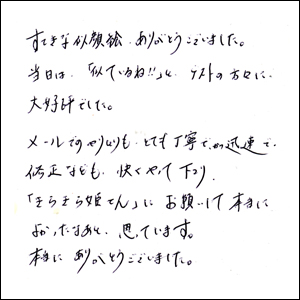 すてきな似顔絵、ありがとうございました。
当日は、「似ているね!!」と、ゲストの方々に、
大好評でした。
メールでのやりとりも、とても丁寧で、迅速で、
修正なども、快くやって下さり、
「きらきら姫さん」にお願いして本当に
よかったなあと、思っています。
本当にありがとうございました。